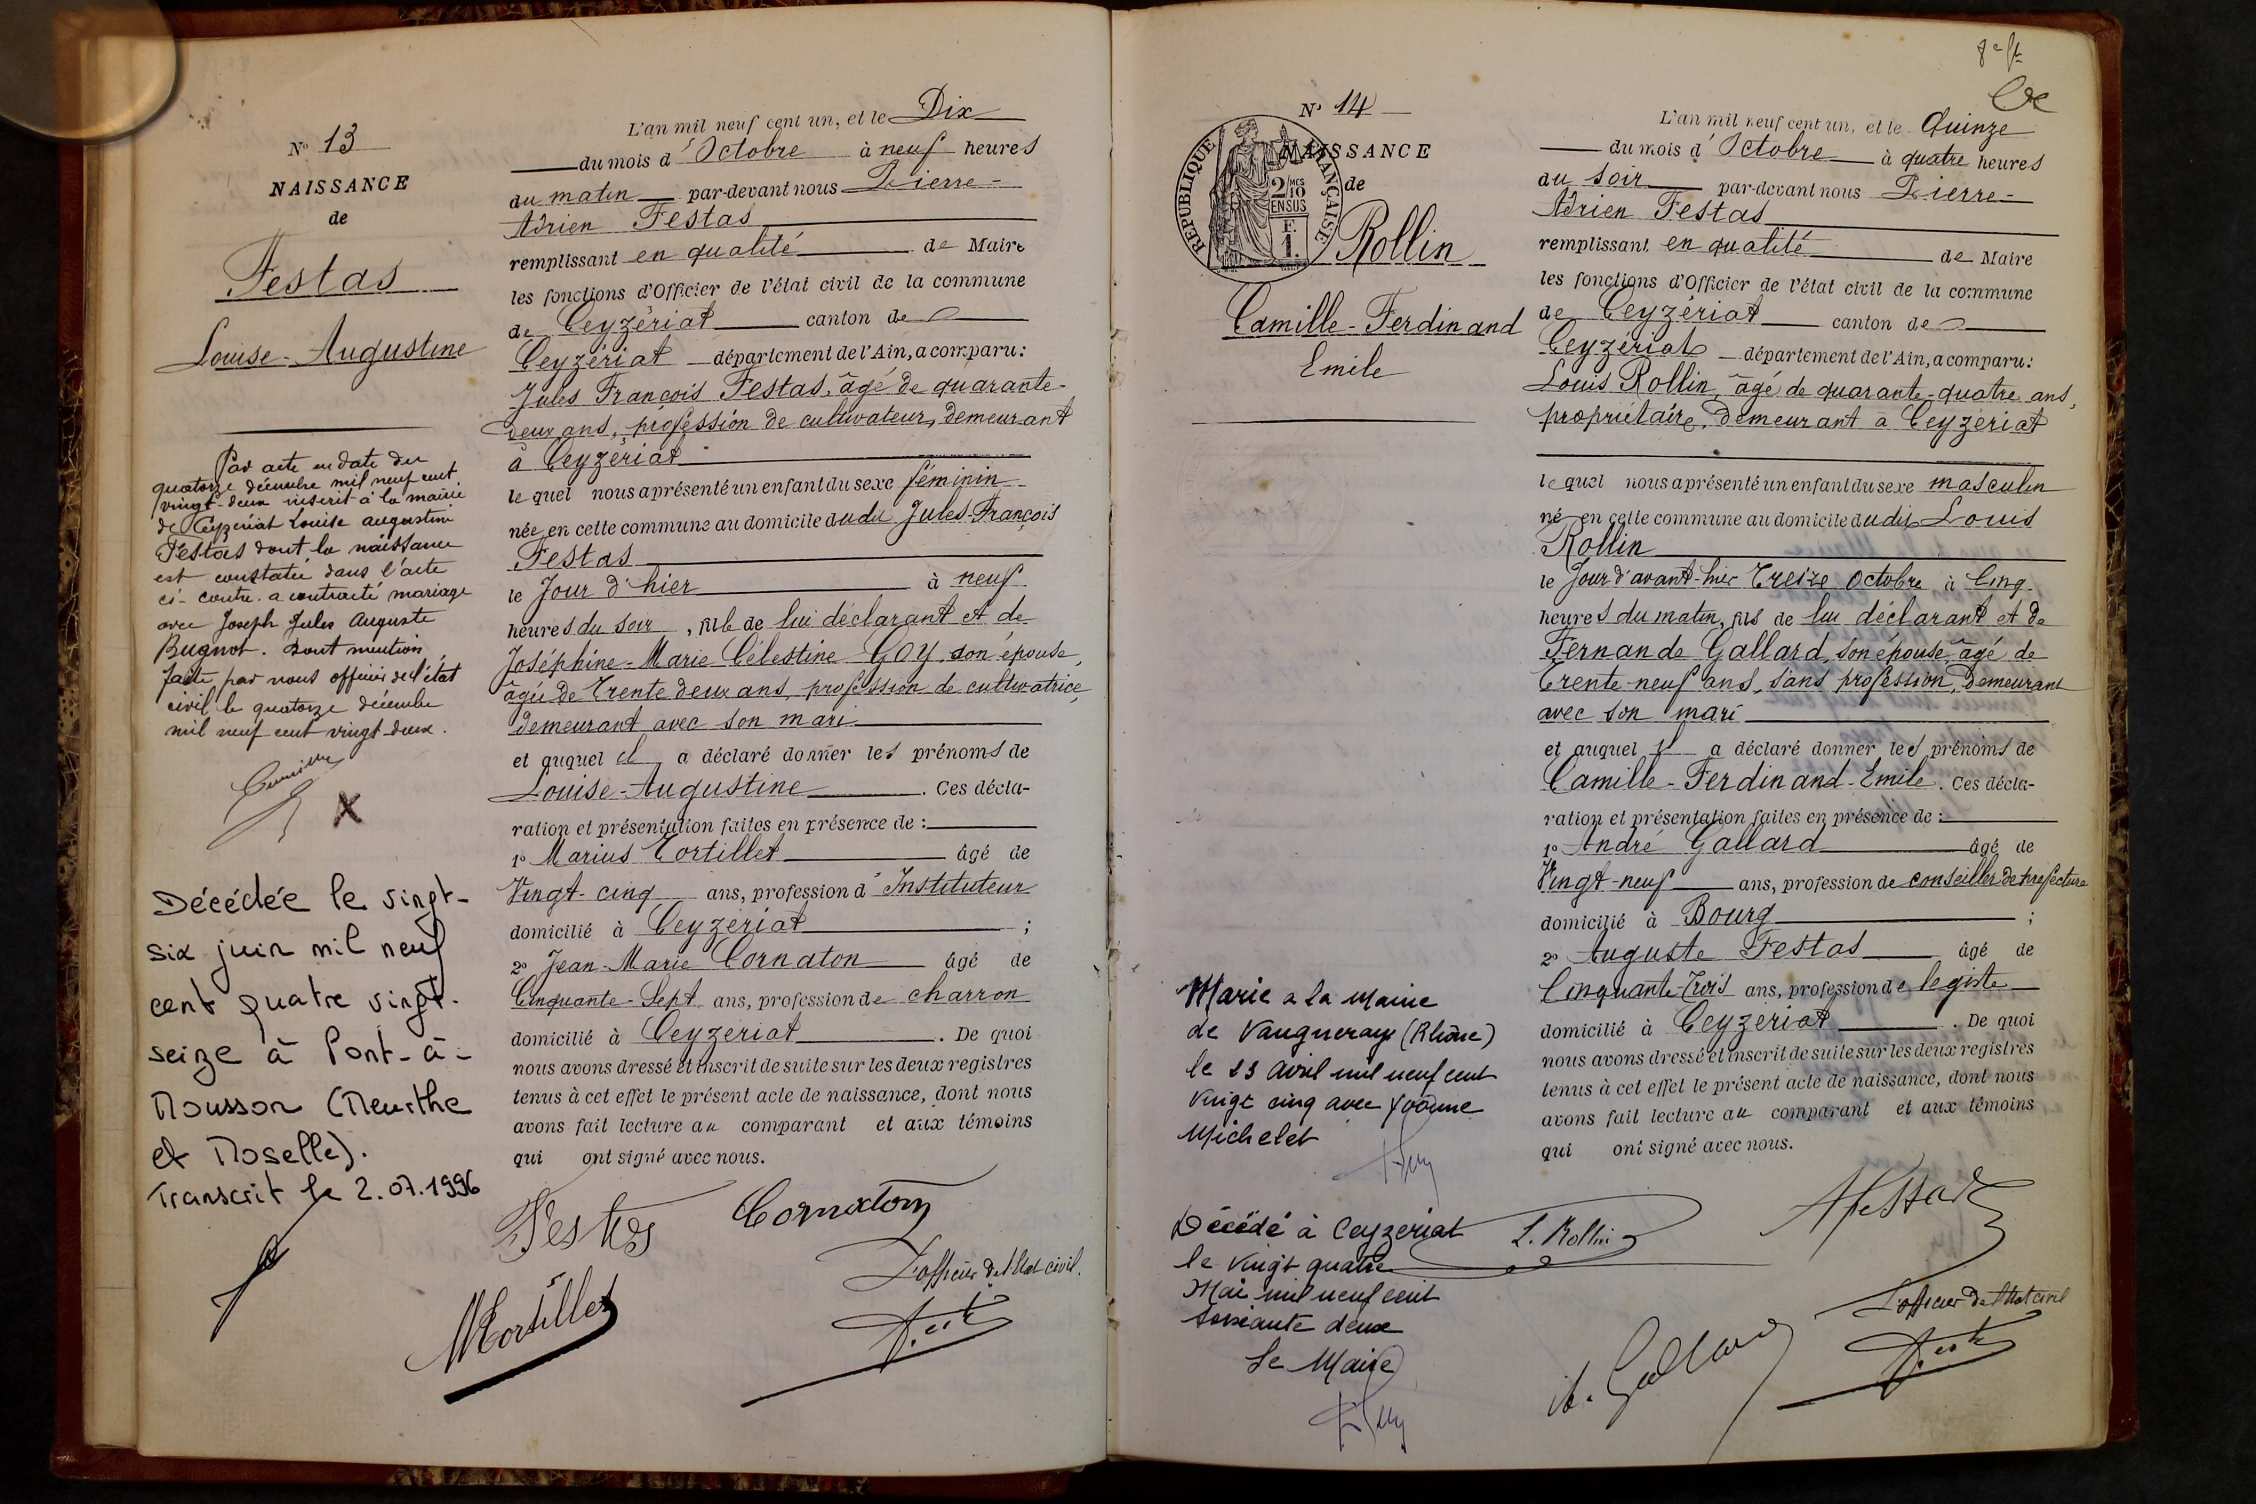 N° 13
NAISSANCE
de
Festas
Louise-Augustine
Par acte en date du
quatorze décembre mil neuf cent
vingt-deux inscrit à la mairie
de Ceyzériat Louise augustine
Festas dont la naissance
est constatée dans l'acte
ci-contre a contracté mariage
avec Joseph Jules Auguste
Bugnot. Dont mention
faite par nous officier de l'état
civil le quatorze décembre
mil neuf cent vingt-deux.
X
Décédée le vingt-
six juin mil neuf
cent quatre vingt-
seize à Pont-à-
Mousson (Meurthe
et Moselle).
Transcrit le 2.07.1996
L'an mil neuf cent un, et le Dix
du mois d'Octobre à neuf heures
du matin par-devant nous Pierre-
Adrien Festas
remplissant en qualité de Maire
les fonctions d'Officier de l'état civil de la commune
de Ceyzériat canton de
Ceyzériat département de l'Ain, a comparu:
Jules François Festas, âgé de quarante-
deux ans, profession de cultivateur, demeurant
à Ceyzériat
le quel nous a présenté un enfant du sexe féminin
née en cette commune au domicile du dit Jules-François
Festas
le Jour d'hier à neuf
heures du soir, fille de lui déclarant et de
Joséphine-Marie Célestine GOY son épouse,
âgée de Trente deux ans, profession de cultivatrice,
demeurant avec son mari
et auquel il a déclaré donner les prénoms de
Louise-Augustine. Ces décla-
ration et présentation faites en présence de :
1° Marius Tortillet âgé de
Vingt-cinq ans, profession d'Instituteur
domicilié à Ceyzériat ;
2° Jean-Marie Cornaton âgé de
Cinquante-Sept ans, profession de charron
domicilié à Ceyzériat. De quoi
nous avons dressé et inscrit de suite sur les deux registres
tenus à cet effet le présent acte de naissance, dont nous
avons fait lecture au comparant et aux témoins
qui ont signé avec nous.
Festas Cornaton
L'officier de l'Etat civil.
MTortillet
8e ft
N° 14
RÉPUBLIQUE FRANÇAISE
2/10 MES
EN SUS
F.
1.
NAISSANCE
de
Rollin
Camille-Ferdinand
Emile
Marié à la Mairie
de Vaugneray (Rhône)
le 23 avril mil neuf cent
vingt cinq avec Yvonne
Michelet
Décédé à Ceyzeriat
le vingt quatre
Mai mil neuf cent
soixante deux
Le Maire
L'an mil neuf cent un, et le Quinze
du mois d'Octobre à quatre heures
du soir par-devant nous Pierre-
Adrien Festas
remplissant en qualité de Maire
les fonctions d'Officier de l'état civil de la commune
de Ceyzériat canton de
Ceyzériat département de l'Ain, a comparu:
Louis Rollin, âgé de quarante-quatre ans,
propriétaire, demeurant à Ceyzériat
le quel nous a présenté un enfant du sexe masculin
né en cette commune au domicile du dit Louis
Rollin
le Jour d'avant-hier Treize Octobre à Cinq
heures du matin, fils de lui déclarant et de
Fernande Gallard, son épouse âgé de
Trente-neuf ans, sans profession, demeurant
avec son mari
et auquel il a déclaré donner les prénoms de
Camille-Ferdinand-Emile. Ces décla-
ration et présentation faites en présence de :
1° André Gallard âgé de
Vingt-neuf ans, profession de conseiller de préfecture
domicilié à Bourg ;
2° Auguste Festas âgé de
Cinquante-Trois ans, profession de légiste
domicilié à Ceyzériat. De quoi
nous avons dressé et inscrit de suite sur les deux registres
tenus à cet effet le présent acte de naissance, dont nous
avons fait lecture au comparant et aux témoins
qui ont signé avec nous.
L. Rollin AFestas
L'officier de l'Etat civil
A. Gallard